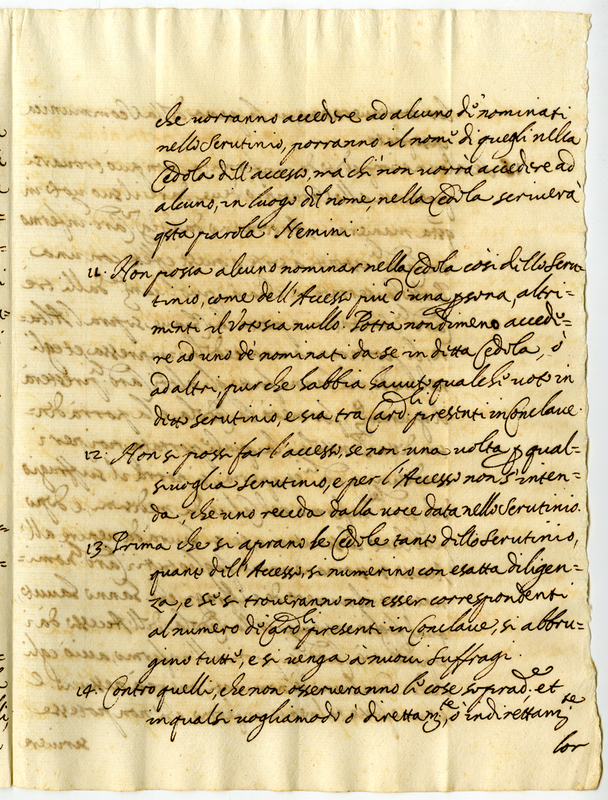 che vorranno accedere ad alcuno de' nominati
nello Scrutinio, porranno il nome di quegli nella
Cedola dell'accesso, mà chi non vorrà accedere ad
alcuno, in luogo del nome, nella Cedola scriverà
qsta parola Nemini
11. Non possa alcuno nominar nella Cedola così dello Scru-
tinio, come dell'Accesso piu d'una psona, altri-
menti il Voto sia nullo. Potrà nondimeno accede-
re ad uno de' nominati da se in detta Cedola, ò
ad altri, purche habbia hauuto qualche voto in
detto scrutinio, e sia tra Card.li presenti in Conclave.
12. Non si possi far l'accesso, se non una volta p qual-
sivoglia scrutinio, e per l'Accesso non s'inten-
da, che uno receda dalla voce data nello Scrutinio.
13. Prima che si aprano le Cedole tanto dello Scrutinio,
quanto dell'Accesso, si numerino con esatta diligen-
za, e se si troveranno non esser corrispondenti
al numero de Card.li presenti in Conclave, si abbru-
gino tutte, e si venga à nuovi suffragi.
14. Contro quelli, che non osserveranno le cose soprad.e et
in qualsi vogliamodo ò direttam.te, ò indirettam.te
lor